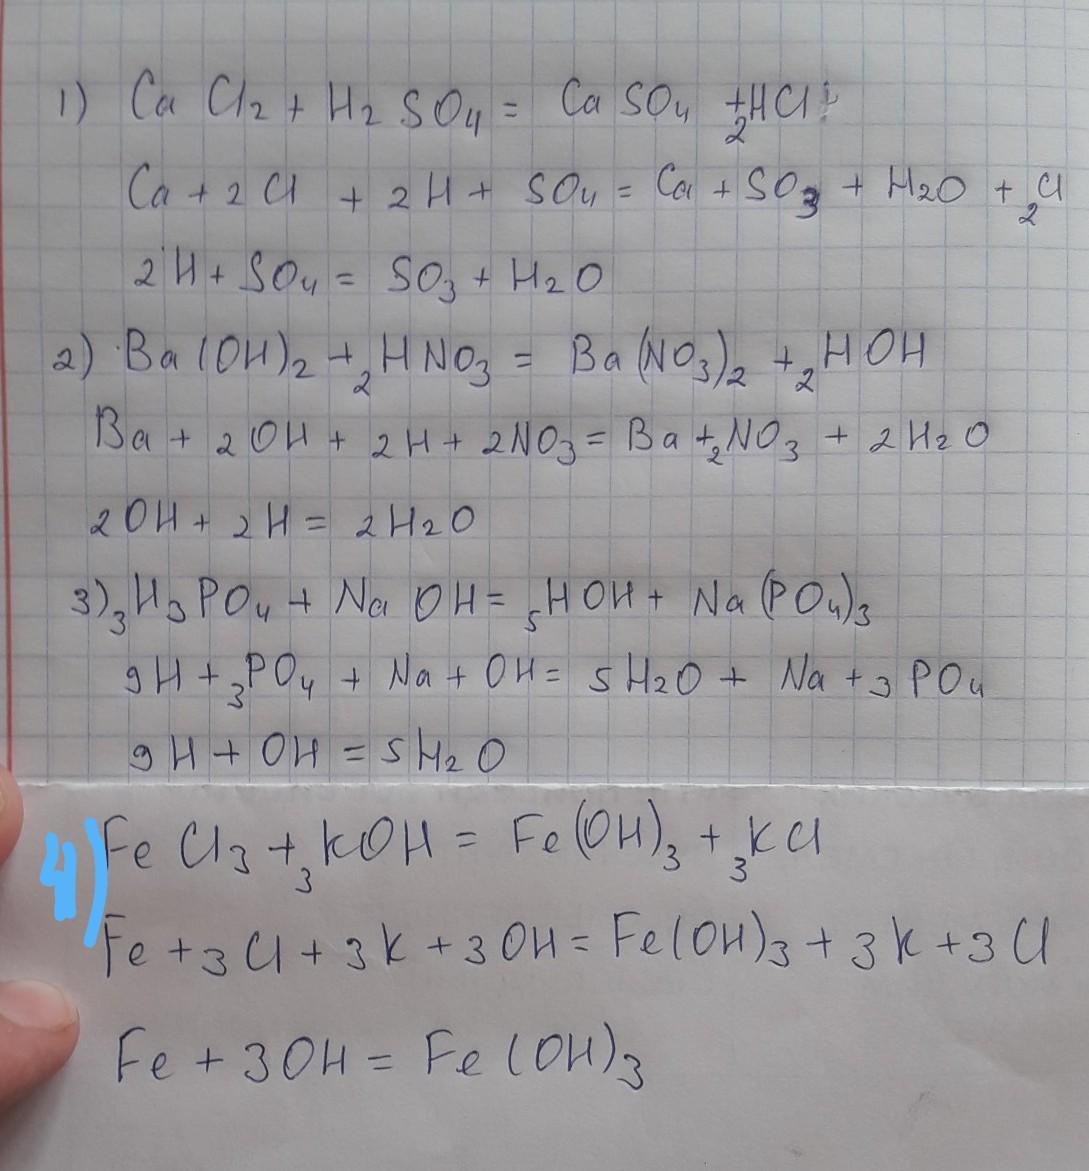 1) CaCl2 + H2SO4 = CaSO4 + 2HCl
Ca + 2Cl + 2H + SO4 = Ca + SO3 + H2O + 2Cl
2H + SO4 = SO3 + H2O
2) Ba(OH)2 + 2HNO3 = Ba(NO3)2 + 2HOH
Ba + 2OH + 2H + 2NO3 = Ba + 2NO3 + 2H2O
2OH + 2H = 2H2O
3) 3H3PO4 + NaOH = 5HOH + Na(PO4)3
9H + 3PO4 + Na + OH = 5H2O + Na + 3PO4
9H + OH = 5H2O
4) FeCl3 + 3KOH = Fe(OH)3 + 3KCl
Fe + 3Cl + 3K + 3OH = Fe(OH)3 + 3K + 3Cl
Fe + 3OH = Fe(OH)3